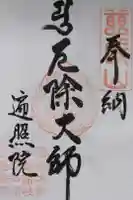 奉納
厄除大師
遍照院